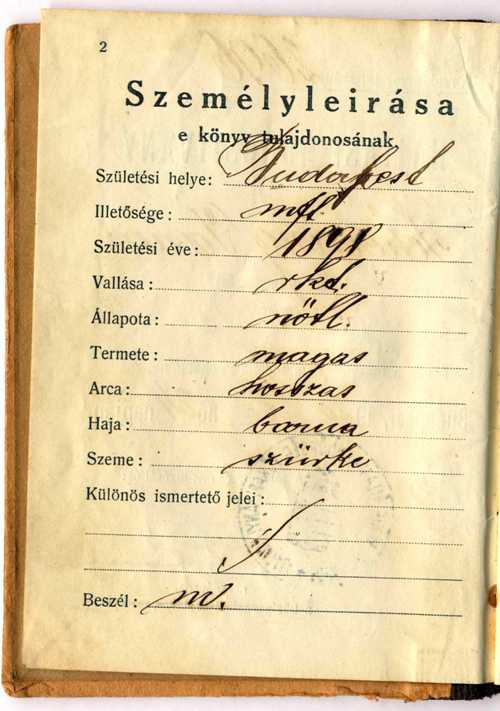 2
Személyleirása
e könyv tulajdonosának
Születési helye: Budapest
Illetősége: mft.
Születési éve: 1898
Vallása: rkt.
Állapota: nőtl.
Termete: magas
Arca: hosszas
Haja: barna
Szeme: szürke
Különös ismertető jelei:
Beszél: m.